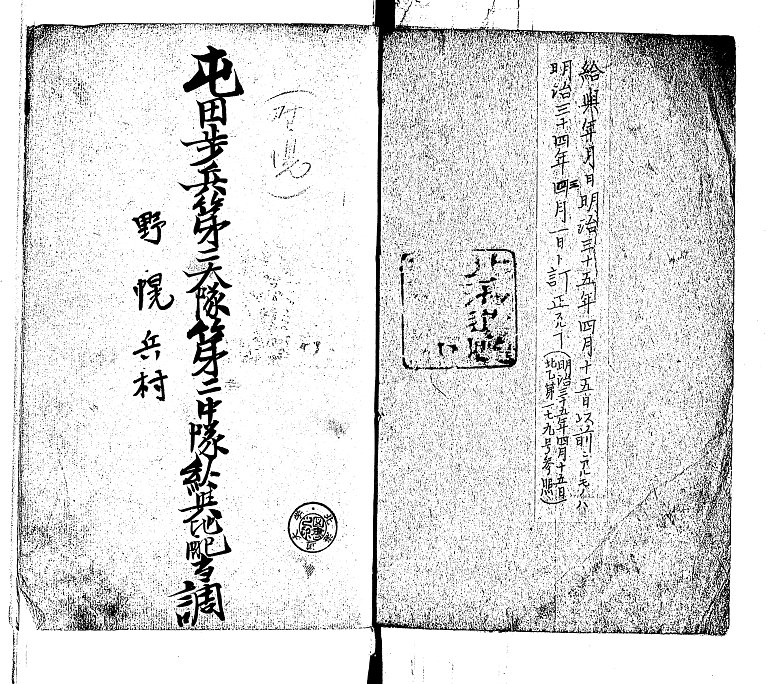 給與年月日明治三十五年四月十五日以前ニ凡モノハ
明治三十四年四月一日ト訂正凡丁
(明治三十五年四月十五日
第一七九号参照)
(野幌)
屯田歩兵第三大隊第二中隊給與地配当調
野幌兵村